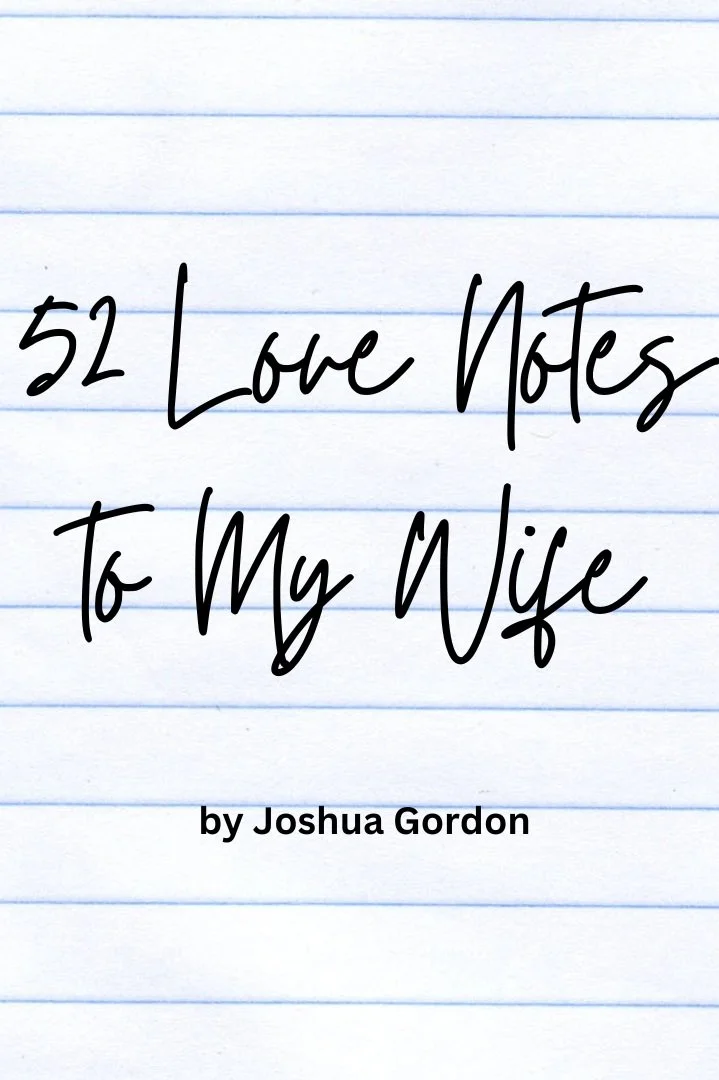 52 Love Notes
To My Wife
by Joshua Gordon